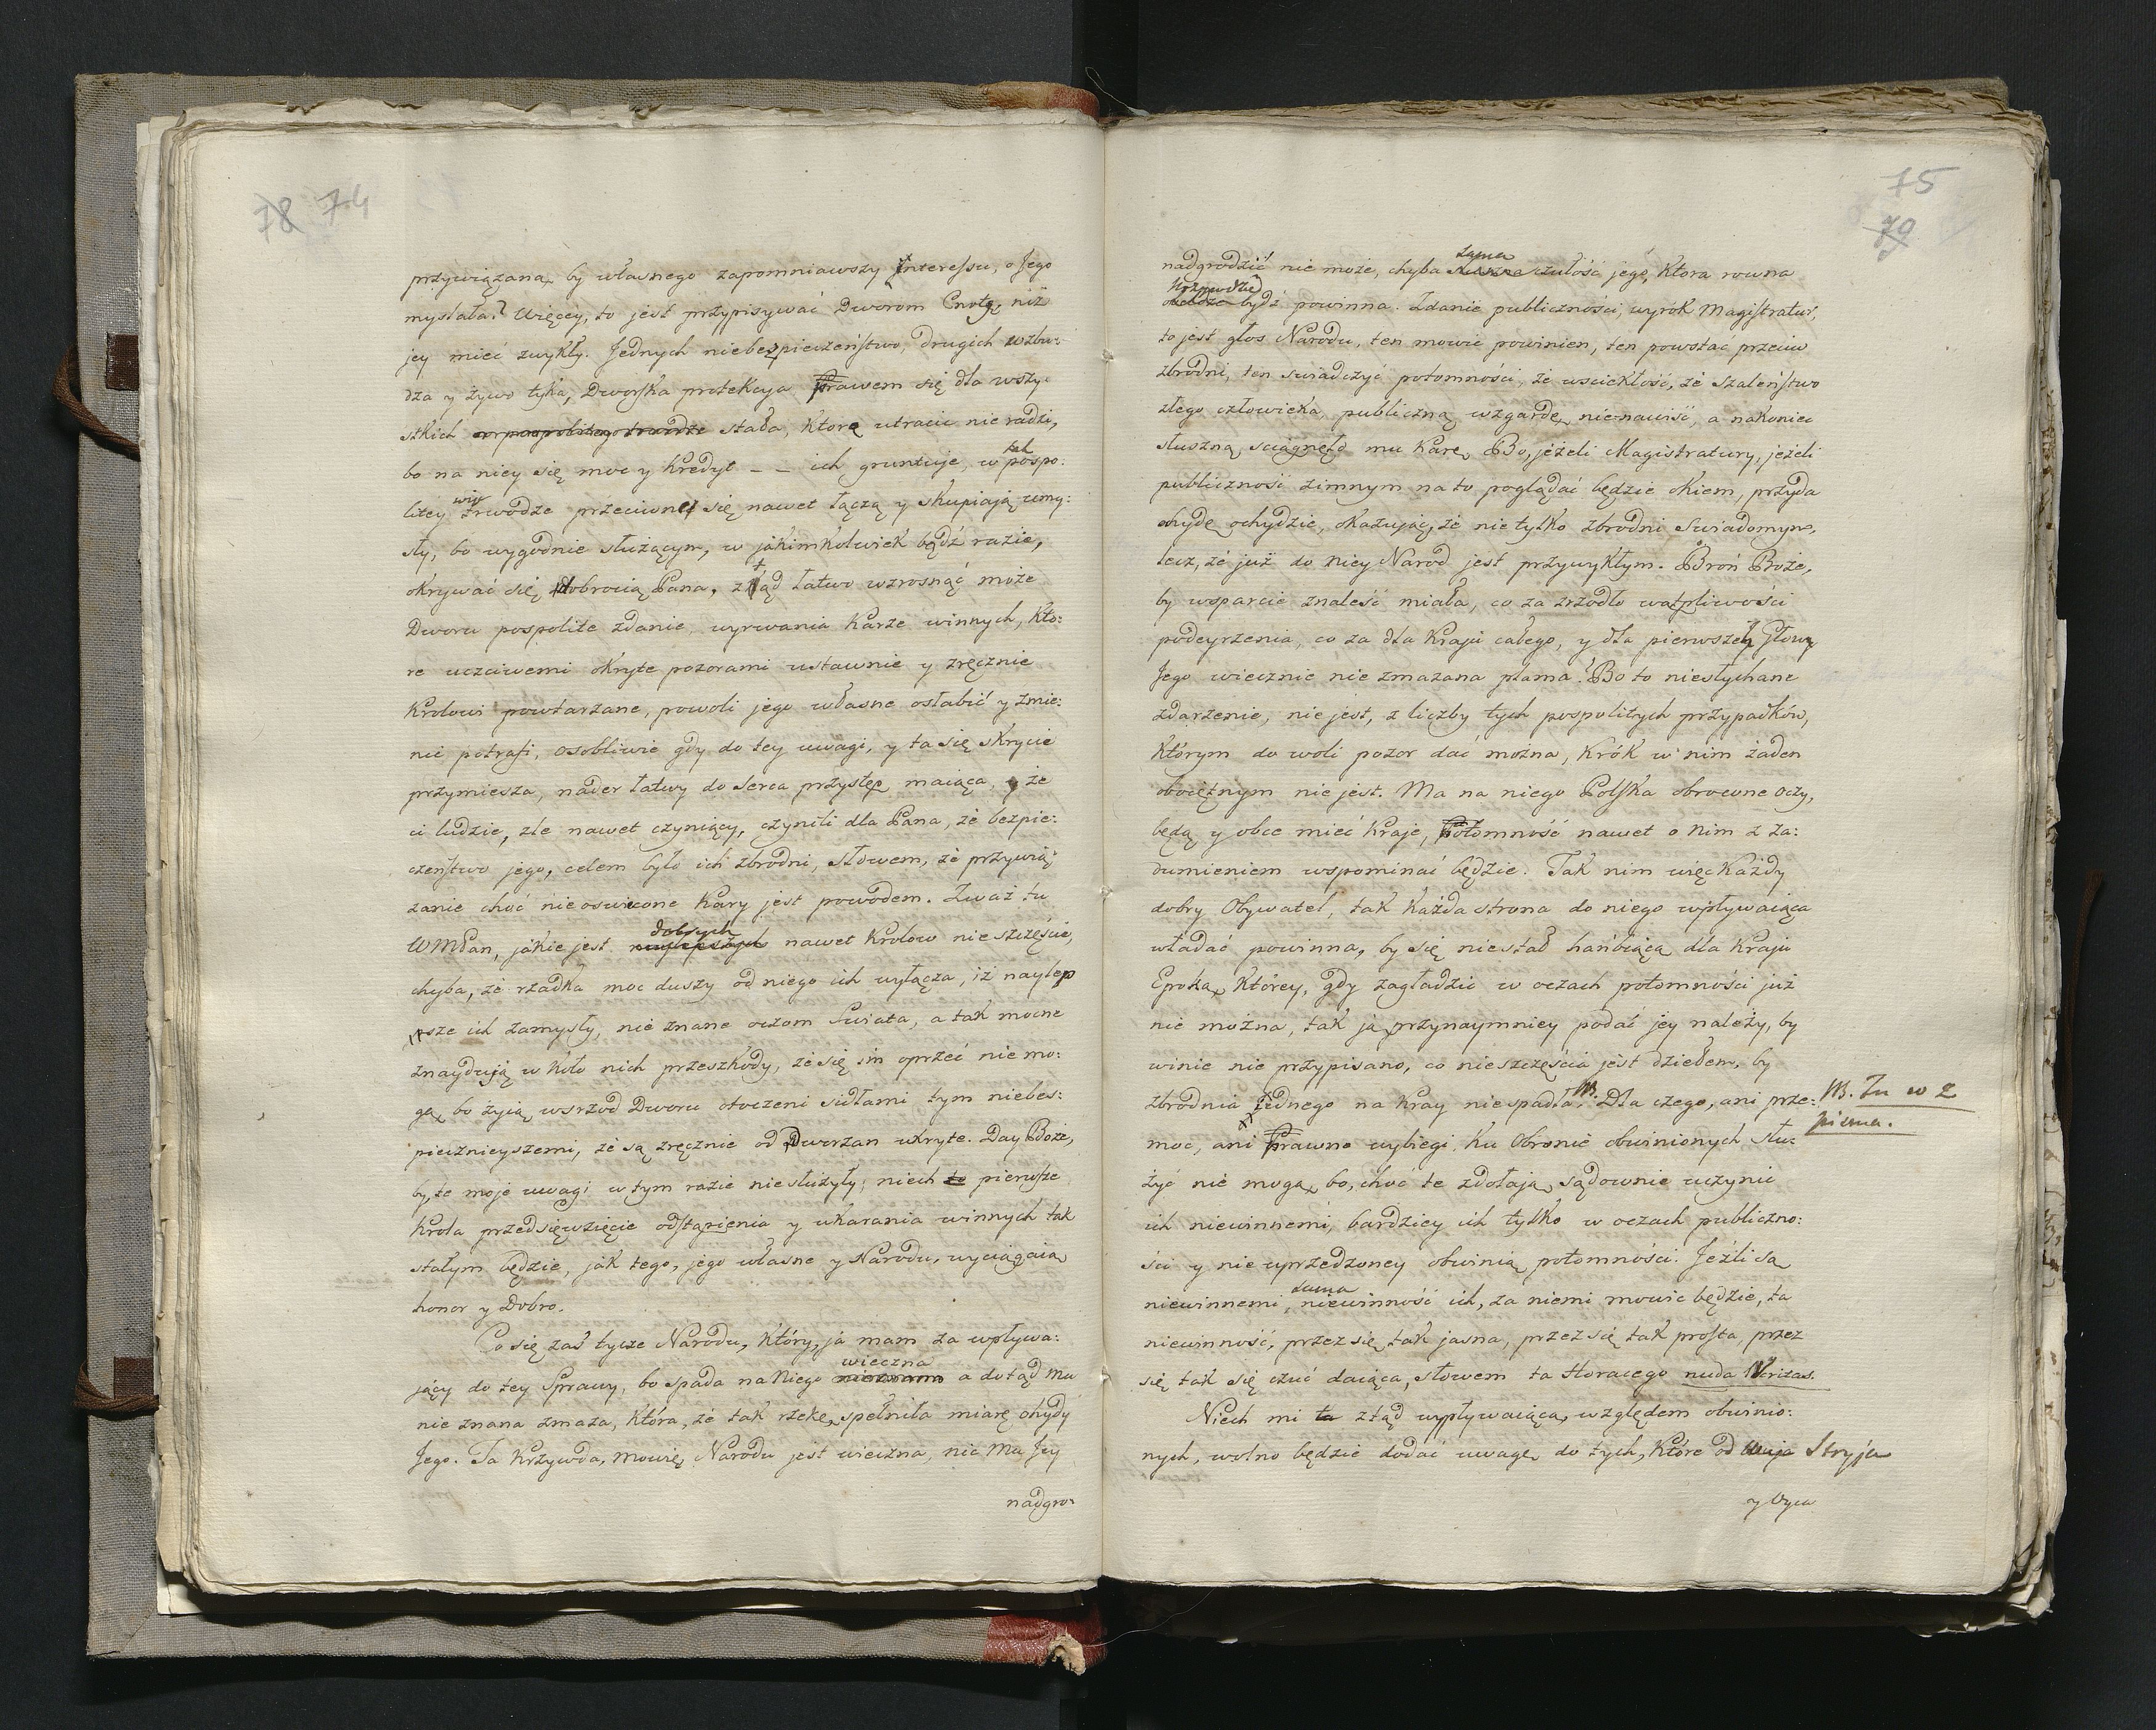 78 74
przywiązana, by własnego zapomniawszy interessu, o Jego
mysłała? Więcey, to jest przypisywać Dworom Cnotę, niż
jey mieć zwykły. Jednych niebezpieczeństwo, drugich wzbu:
dza y żywo tyka, Dworska protekcya prawem się dla wszy:
stkich stała, ktorę utracić nie radzi,
bo na niey się moc y kredyt _ _ ich gruntuje, w tak pospo:
litey więc trwodze przeciwne się nawet łączą y skupiają umy:
sły, bo wygodnie służącym, w jakimkolwiek bądź razie,
okrywać się dobrocią Pana, ztąd łatwo wzrosnąć może
Dworu pospolite zdanie, wyrwania karze winnych, kto:
re uczciwemi okryte pozorami ustawnie y zręcznie
Krolowi powtarzane, powoli jego własne osłabić y zmie:
nić potrafi, osobliwie gdy do tey uwagi, y ta się skrycie
przymiesza, nader łatwy do serca przystęp maiąca, że
ci ludzie, złe nawet czyniący, czynili dla Pana, że bezpie:
czeństwo jego, celem było ich zbrodni, słowem, że przywią:
zanie choć nieoswiecone kary jest powodem. Zważ tu
WMPan, jakie jest dobrych nawet Krolow nieszczęście,
chyba, że rzadka moc duszy od niego ich wyłącza, iż naylep
sze ich zamysły, nie znane oczom Swiata, a tak mocne
znaydują w koło nich przeszkody, że się im oprzeć nie mo:
gą, bo żyią wsrzod Dworu otoczeni sidłami tym niebes:
piecznieyszemi, że są zręcznie od Dworzan ukryte. Day Boże,
by, te moje uwagi w tym razie niesłużyły; niech to pierwsze
Krola przedsięwzięcie odstąpienia y ukarania winnych tak
stałym będzie, jak tego, jego własne y Narodu, wyciągaią
honor y Dobro.
Co się zaś tycze Narodu, który, ja mam za wpływa:
jący do tey Sprawy, bo spada na Niego wieczna a dotąd mu
nie znana zmaza, która, że tak rzekę, spełniła miarę ohydy
Jego. Ta krzywda, mowię, Narodu jest wieczna, nic mu Jey
nadgro:
75
79
nadgrodzić nie może, chyba sama czułość jego, ktora rowna
krzywdzie bydź powinna. Zdanie publiczności, wyrók Magistratur,
to jest głos Narodu, ten mowić powinien, ten powstać przeciw
zbrodni, ten swiadczyć potomności, że wsciekłość, że szaleństwo
złego człowieka, publiczną wzgardę, nienawiść, a nakoniec
słuszną sciągnęło mu karę. Bo, jeżeli Magistratury, jeżeli
publiczność zimnym na to poglądać będzie okiem, przyda
ohydę ochydzie, okazując, że nie tylko zbrodni swiadomym,
lecz, że już do niey Narod jest przywykłym. Broń Boże,
by wsparcie znaleść miała, co za zrzodło wątpliwości
podeyrzenia, co za dla Kraju całego, y dla pierwszey Głowy
Jego wiecznie nie zmazana plama! Bo to niesłychane
zdarzenie, nie jest, z liczby tych pospolitych przypadków,
którym do woli pozor dać można, krók w nim żaden
obojętnym nie jest. Ma na niego Polska obrocone oczy,
będą y obce mieć kraje, potomność nawet o nim z za:
dumieniem wspominać będzie. Tak nim więc każdy
dobry Obywatel, tak każda strona do niego wpływaiąca
władać powinna, by się niestał hańbiącą dla Kraju
Epoką, którey, gdy zagładzić w oczach potomności już
nie można, tak ją przynaymniey podać jey należy, by
winie nie przypisano, co nieszczęścia jest dziełem, by
zbrodnia jednego na kray niespadła. NB. Dla czego, ani prze:
NB. Tu w 2
pisma.
moc, ani prawne wybiegi, ku obronie obwinionych słu:
żyć nie mogą, bo, choć te zdołają sądownie uczynić
ich niewinnemi, bardziey ich tylko w oczach publiczno:
ści y nie uprzedzoney obwinią potomności. Jeżli są
niewinnemi, sama niewinność ich, za niemi mowić będzie, ta
niewinność, przez się tak jasna, przez się tak prosta, przez
się tak się czuć daiąca, słowem ta Horacego nuda Veritas.
Niech mi ztąd wypływaiącą, względem obwinio:
nych, wolno będzie dodać uwagę, do tych, które od Stryja
y Oyca